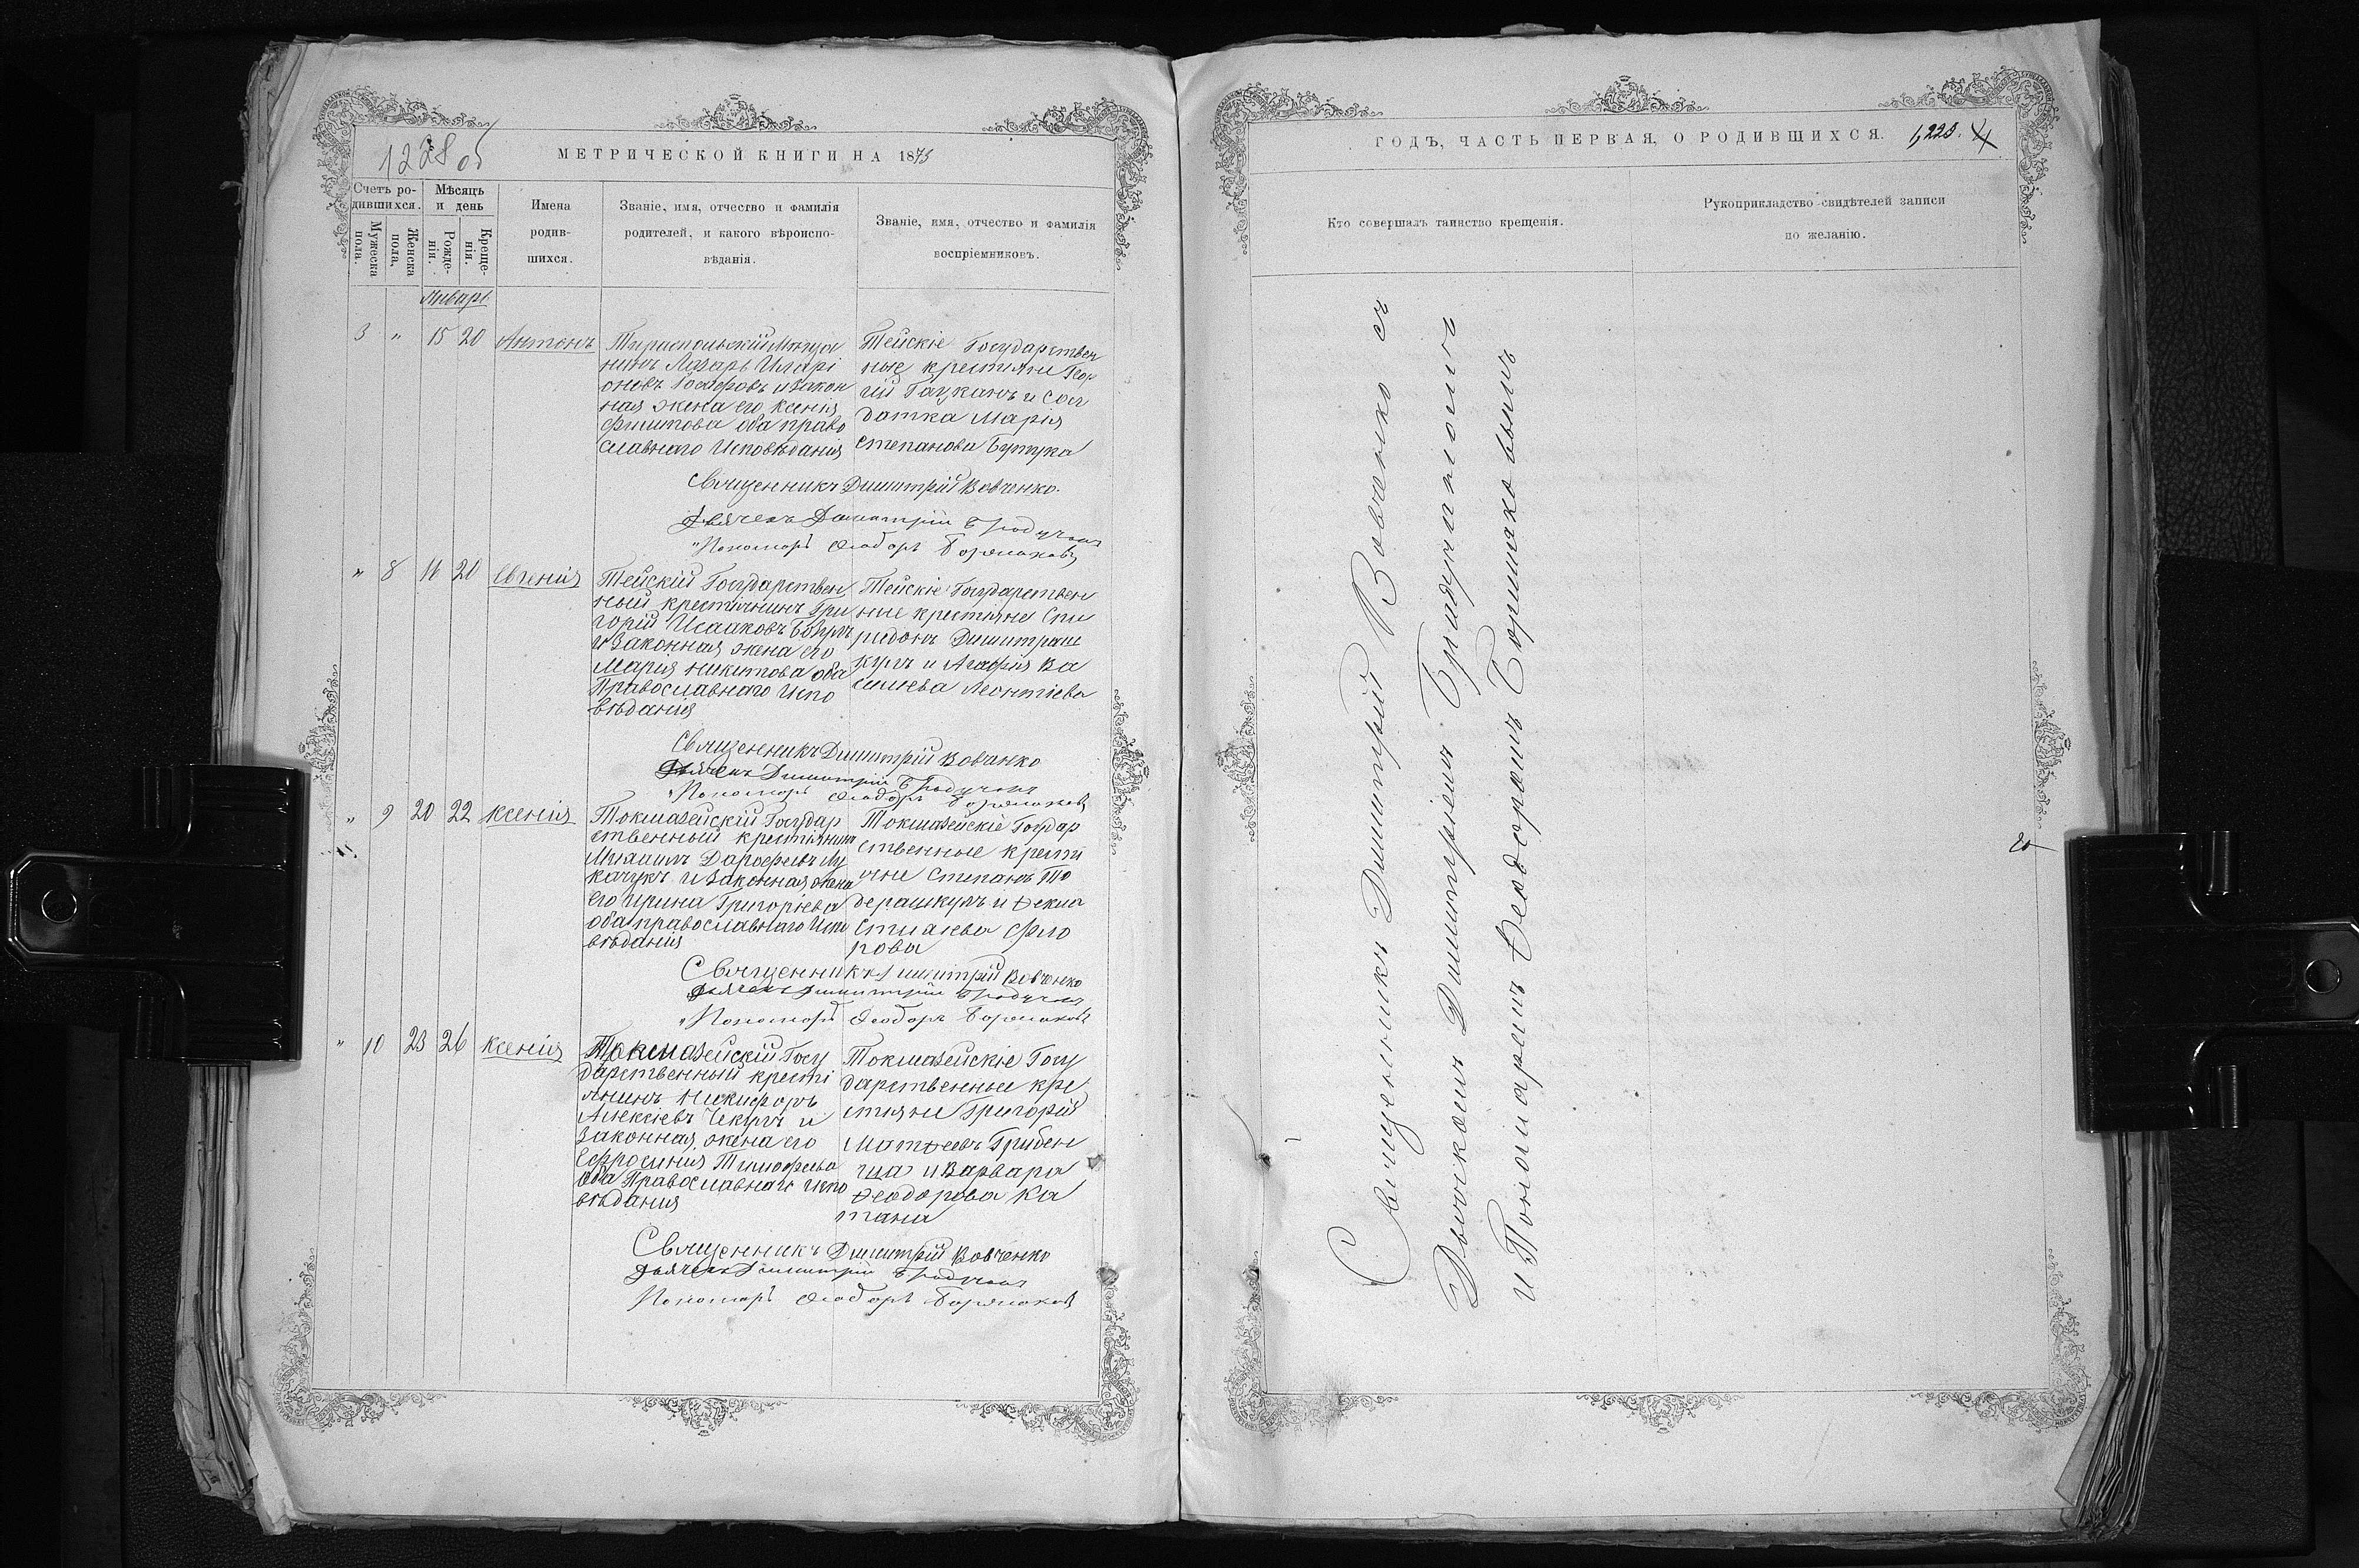 1228 об
МЕТРИЧЕСКОЙ КНИГИ НА 1875
Счетъ ро-
дившихся.
Мужеска
пола.
Женска
пола.
Мѣсяцъ
и день
Рожде-
нія.
Креще-
нія.
Имена
родив-
шихся.
Званіе, имя, отчество и фамилія
родителей, и какого вѣроиспо-
вѣданія.
Званіе, имя, отчество и фамилія
воспріемниковъ.
Январь
3 " 15 20 Антонъ
Тираспольскій мѣща
нинъ Лазарь Иларі
оновъ и закон
ная жена его Ксенія
Филипова оба право
славнаго Исповѣданія
Тейскіе Государствен
ные крестяне Геор
гій и Сол
датка Марія
Степанова Бутука
Священникъ Димитрій Вовченко.
Дьячекъ Димитрій
"Пономарь Ѳеодоръ
" 8 20 Евгенія
Тейскій Государствен
ный крестянинъ Гри
горій Исааковъ
и Законная жена его
Мария Никитова оба
Православнаго Испо
вѣдания
Тейскіе Государствен
ные крестяне Спи
ридонъ Димитраш
кулъ и Агафія Ва
силиева Леонтіева
Священникъ Димитрій Вовченко
Дьячекъ Димитрій
"Пономарь Ѳеодоръ
" 9 20 22 Ксенія
Токмазейскій Государ
ственный крестянинъ
Михаилъ Дарофеевъ Лу
качукъ и Законная жена
его Ирина Григориева
оба православнаго Испо
вѣданія
Токмазейскіе Государ
ственные крести
яне Степанъ То
дерашкулъ и Ѳекла
Фло
рова
Священникъ Димитрій Вовченко
Дьячекъ Димитрій
"Пономарь Ѳеодоръ
" 10 23 26 Ксенія
Токмазейскій Госу
дарственный крести
янинъ Никифоръ
Алексіевъ Чекулъ и
Законная жена его
Ефросинія Тимофеева
оба Православнаго Испо
вѣдания
Токмазейскіе Госу
дарственные кре
стяне Григорій
Матѳеевъ Грибен
ща и Варвара
Ѳеодорова Ка
тана
Священникъ Димитрій Вовченко
Дьячекъ Димитрій
Пономарь Ѳеодоръ
ГОДЪ, ЧАСТЬ ПЕРВАЯ, О РОДИВШИХСЯ.
Кто совершалъ таинство крещенія.
Рукоприкладство свидѣтелей записи
по желанію.
Священникъ Димитрій Вовченко съ
Дьячкомъ Димитріемъ
и Пономаремъ Ѳеодоромъ